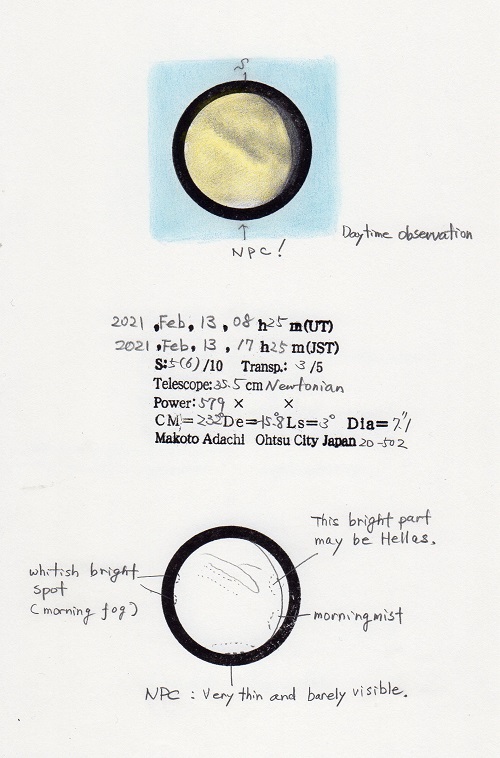 S
NPC!
Daytime observation
2021 , Feb, 13 , 08 h 25 m (UT)
2021 , Feb, 13 , 17 h 25 m (JST)
S: 5(6) /10 Transp.: 3 /5
Telescope: 35.5 cm Newtonian
Power: 579 × ×
CM= 232° De= -15.8 Ls= 3° Dia= 7."1
Makoto Adachi Ohtsu City Japan 20-502
This bright part
may be Hellas.
whitish bright
spot
(morning fog)
morning mist
NPC : Very thin and barely visible.